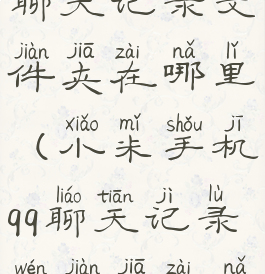 聊天记录文
jiàn jiā zài nǎ lǐ
件夹在哪里
xiǎo mǐ shǒu jī
（小米手机
liáo tiān jì lù
qq聊天记录
wén jiàn jiā zài nǎ